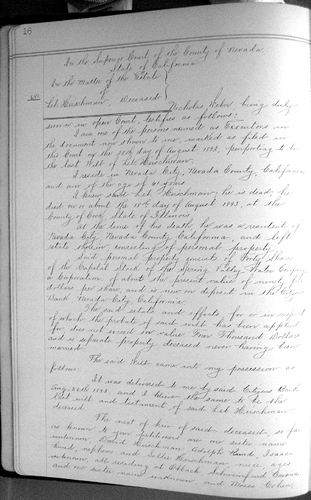 16
In the Superior Court of the County of Nevada
State of California
In the Matter of the Estate
of
Leb Hirschman, Deceased
Nicholas Weber being duly
sworn in open Court, testifies as follows:
I am one of the persons named as Executors in
the document now shown to me, marked as filed in
this Court on the day of August 1893, purporting to be
the last Will of Leb Hirschman.
I reside in Nevada City, Nevada County, California
and am of the age of years
I knew said Leb Hirschman; he is dead; he
died on or about the 10th day of August 1893, at the
County of Cook, State of Illinois
at the time of his death, he was a resident of
Nevada City, Nevada County, California, and left
estate therein consisting of personal property.
Said personal property consists of Forty Shares
of the Capital Stock of the Spring Valley Water Company
a Corporation, of about the present value of ninety five
dollars per share and is now on deposit in the Citizens
Bank, Nevada City, California.
The said estate and effects, for or in respect
of which the probate of said will has been applied
for, does not exceed in value Four Thousand Dollars
and is separate property, deceased never having been
married.
The said Will came into my possession as
follows:
It was delivered to me by said Citizens Bank
Aug. 1893 and I believe the same to be the
last will and testament of said Leb Hirschman
deceased.
The next of kin of said deceased, so far
as known to your petitioner are one sister name
unknown, David Hirschman, Adolph
nephews and Hirschman, niece, ages
unknown, all residing at
and one sister name unknown and Moses